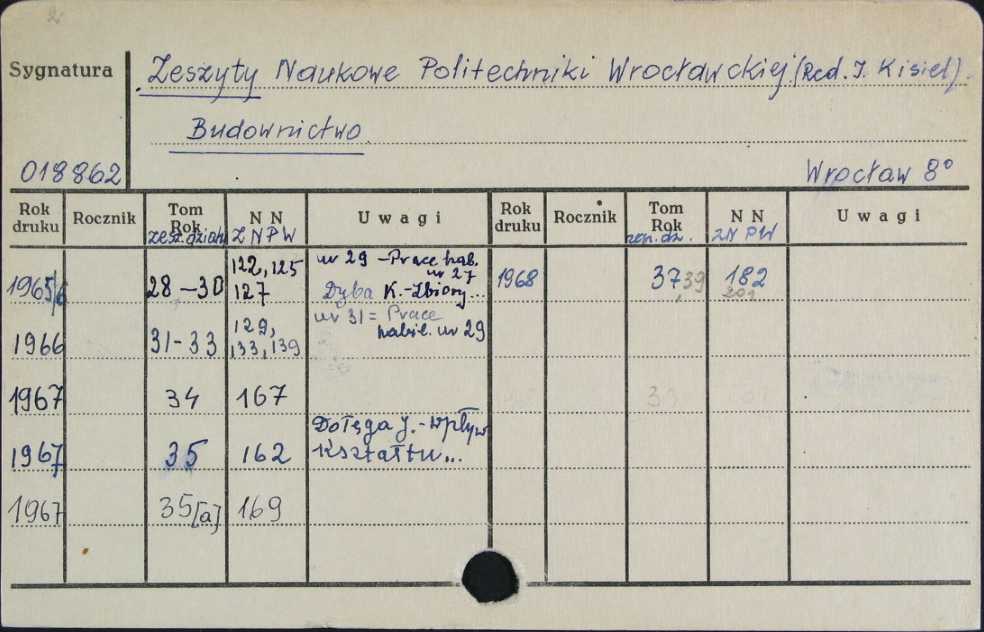 Sygnatura
Zeszyty Naukowe Politechniki Wrocławskiej (Red. I. Kisiel).
Budownictwo
018862
Wrocław 8°
Rok druku Rocznik Tom Rok zesz. działu N N ZNPW Uwagi Rok druku Rocznik Tom Rok zesz. dz. N N ZNPW Uwagi
1965/6 28-30 122, 125 127 nr 29 - Prace hab. nr 27 Dyba K. - Zbiory... 1968 37,39 182 201
1966 31-33 129, 133, 139 nr 31 = Prace habil. nr 29
1967 34 167
1967 35 162 Dołęga J. - Wpływ kształtu...
1967 35[a] 169